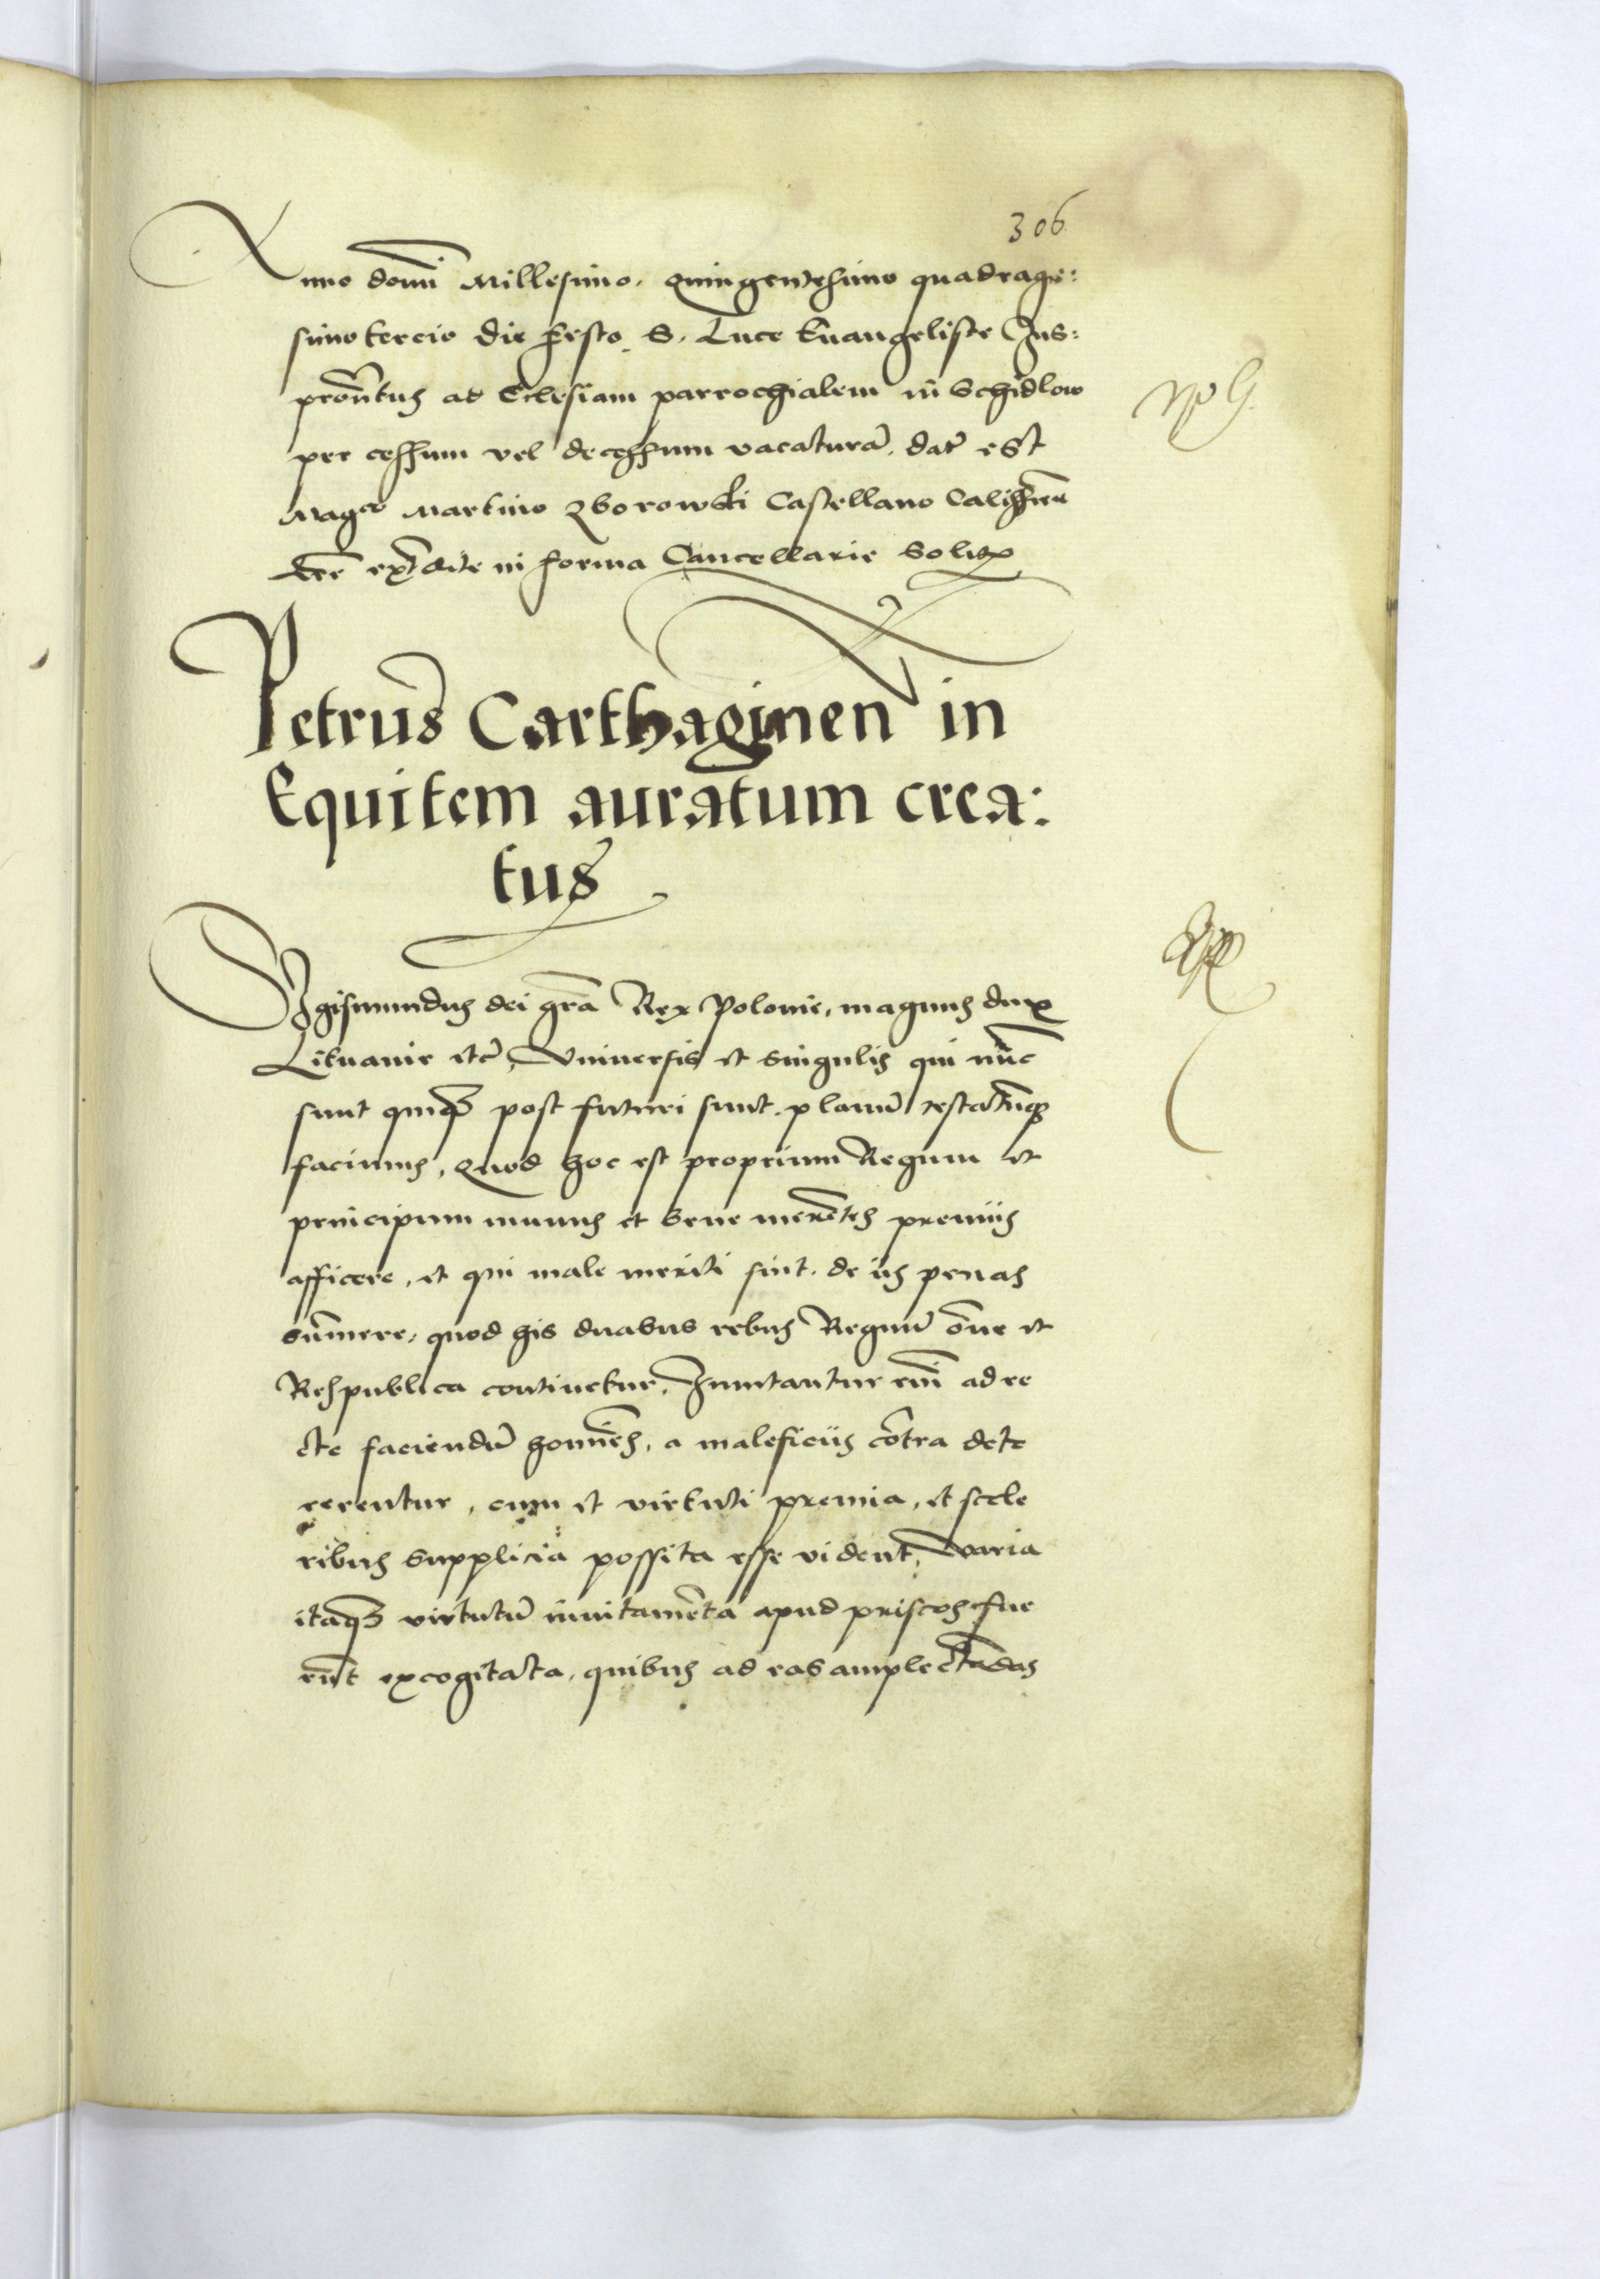 306
Anno domi Millesimo. Quingentesimo quadrage:
simotercio die festo S. Luce Evangeliste Ius:
ad Eclesiam parrochialem in Schidlow
per cessum vel decessum vacaturā. datū est
Magco Martino Zborowski Castellano Calissien
in forma Cancellarie Solita
Petrus Carthaginen in
Equitem auratum crea:
tus
Sigismundus dei grā Rex Polonie, magnus dux
Lituanie etc̄, Universis et singulis qui nūc
sunt quiqȝ post futuri sunt. planū testatūqȝ
facimus, Quod hoc est proprium Regum et
principum munus et bene merētes premiis
afficere, et qui male meriti sint. de iis penas
sūmere, quod his duabus rebus Regnū ōne et
Respublica continetur, Inuitantur eīm ad re
cte faciendū homīes, a maleficiis cōtra dete
rerentur, cum et virtuti premia, et scele
ribus supplicia possita esse vident, Varia
itaqȝ virtutū inuitamēta apud priscos fue
rūt excogitata, quibus ad eas amplectēdas